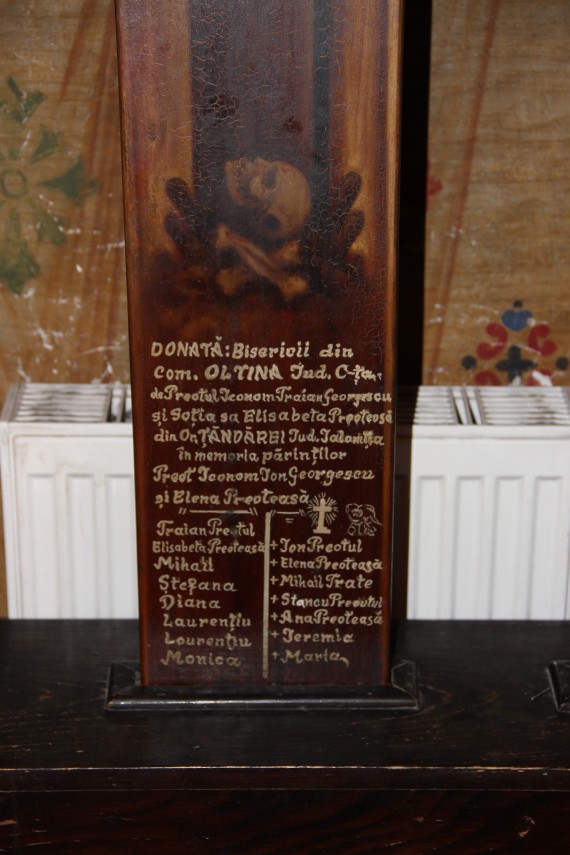 DONATĂ: Bisericii din
com. OLTINA Jud. C-ța,
de Preotul Iconom Traian Georgescu
și Soția sa Elisabeta Preoteasă
din Or. ȚĂNDĂREI Jud. Ialomița
în memoria părinților
Preot Iconom Ion Georgescu
și Elena Preoteasă
Traian Preotul
Elisabeta Preoteasă
Mihail
Ștefana
Diana
Laurențiu
Lourențiu
Monica
+ Ion Preotul
+ Elena Preoteasă
+ Mihail Frate
+ Stancu Preotul
+ Ana Preoteasă
+ Jeremia
+ Maria